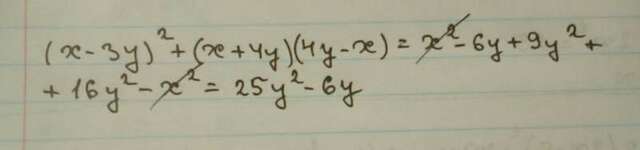 (x-3y)²+(x+4y)(4y-x)=x²-6y+9y²+
+16y²-x²=25y²-6y